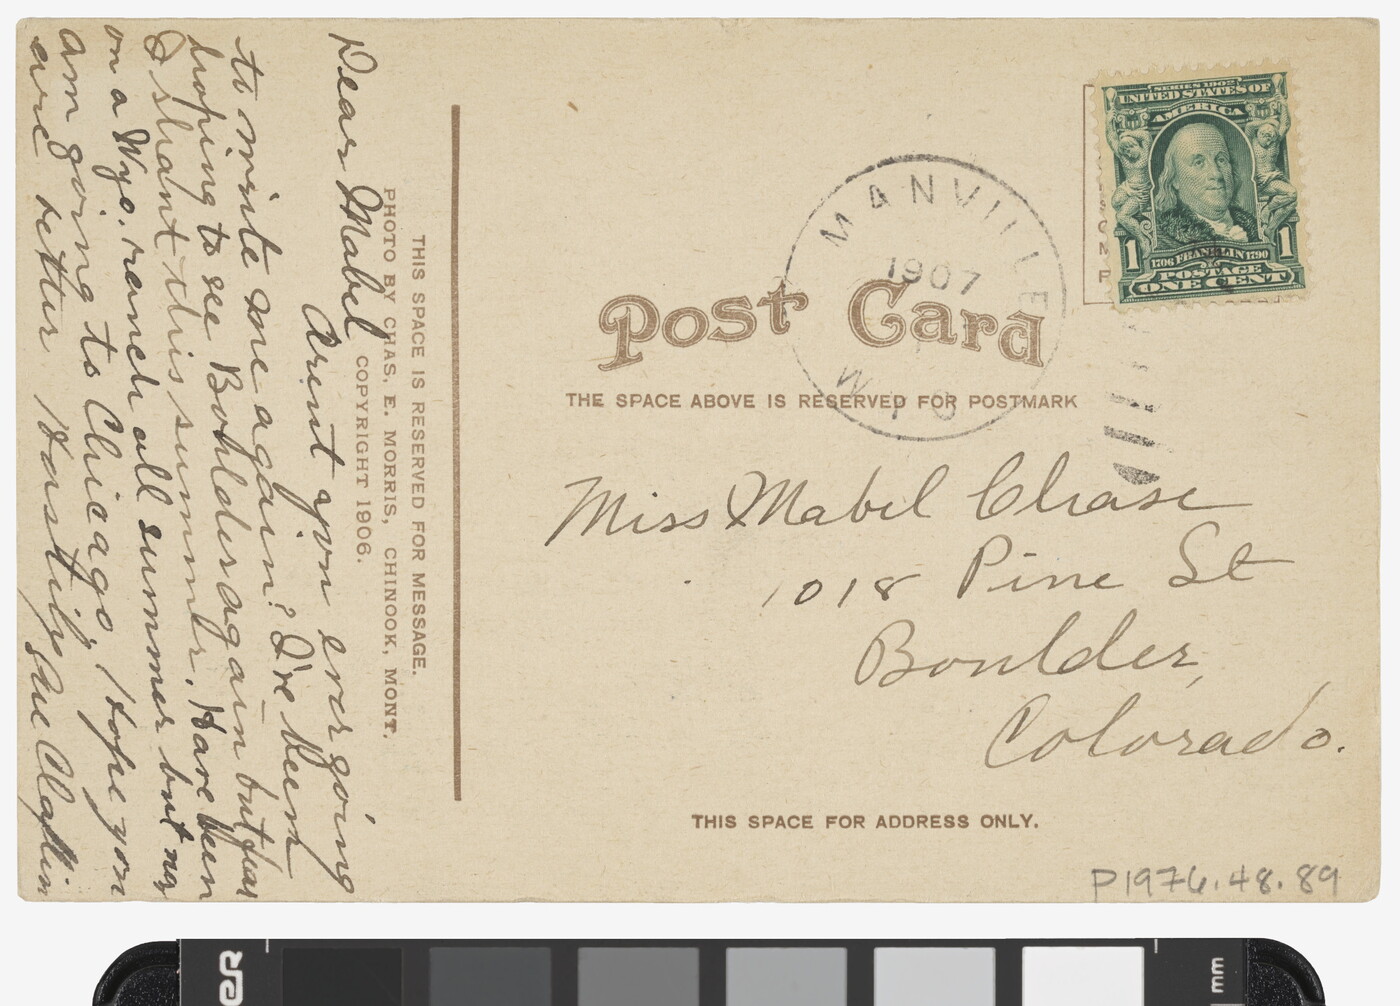 Dear Mabel
Arent you ever going
to write me again? I've been
hoping to see Bowlder again but fear
I shant this summer. Have been
on a Wyo. ranch all summer but now
am going to Chicago, Hope you
are better Hastily Sue
THIS SPACE IS RESERVED FOR MESSAGE.
PHOTO BY CHAS. E. MORRIS, CHINOOK, MONT.
COPYRIGHT 1906.
SERIES 1902
UNITED STATES OF
AMERICA
1 1
1706 FRANKLIN 1790
POSTAGE
ONE CENT
MANVILLE
1907
WYO
Post Card
THE SPACE ABOVE IS RESERVED FOR POSTMARK
Miss Mabel Chase
1018 Pine St
Boulder,
Colorado.
THIS SPACE FOR ADDRESS ONLY.
P1976.48.89
mm